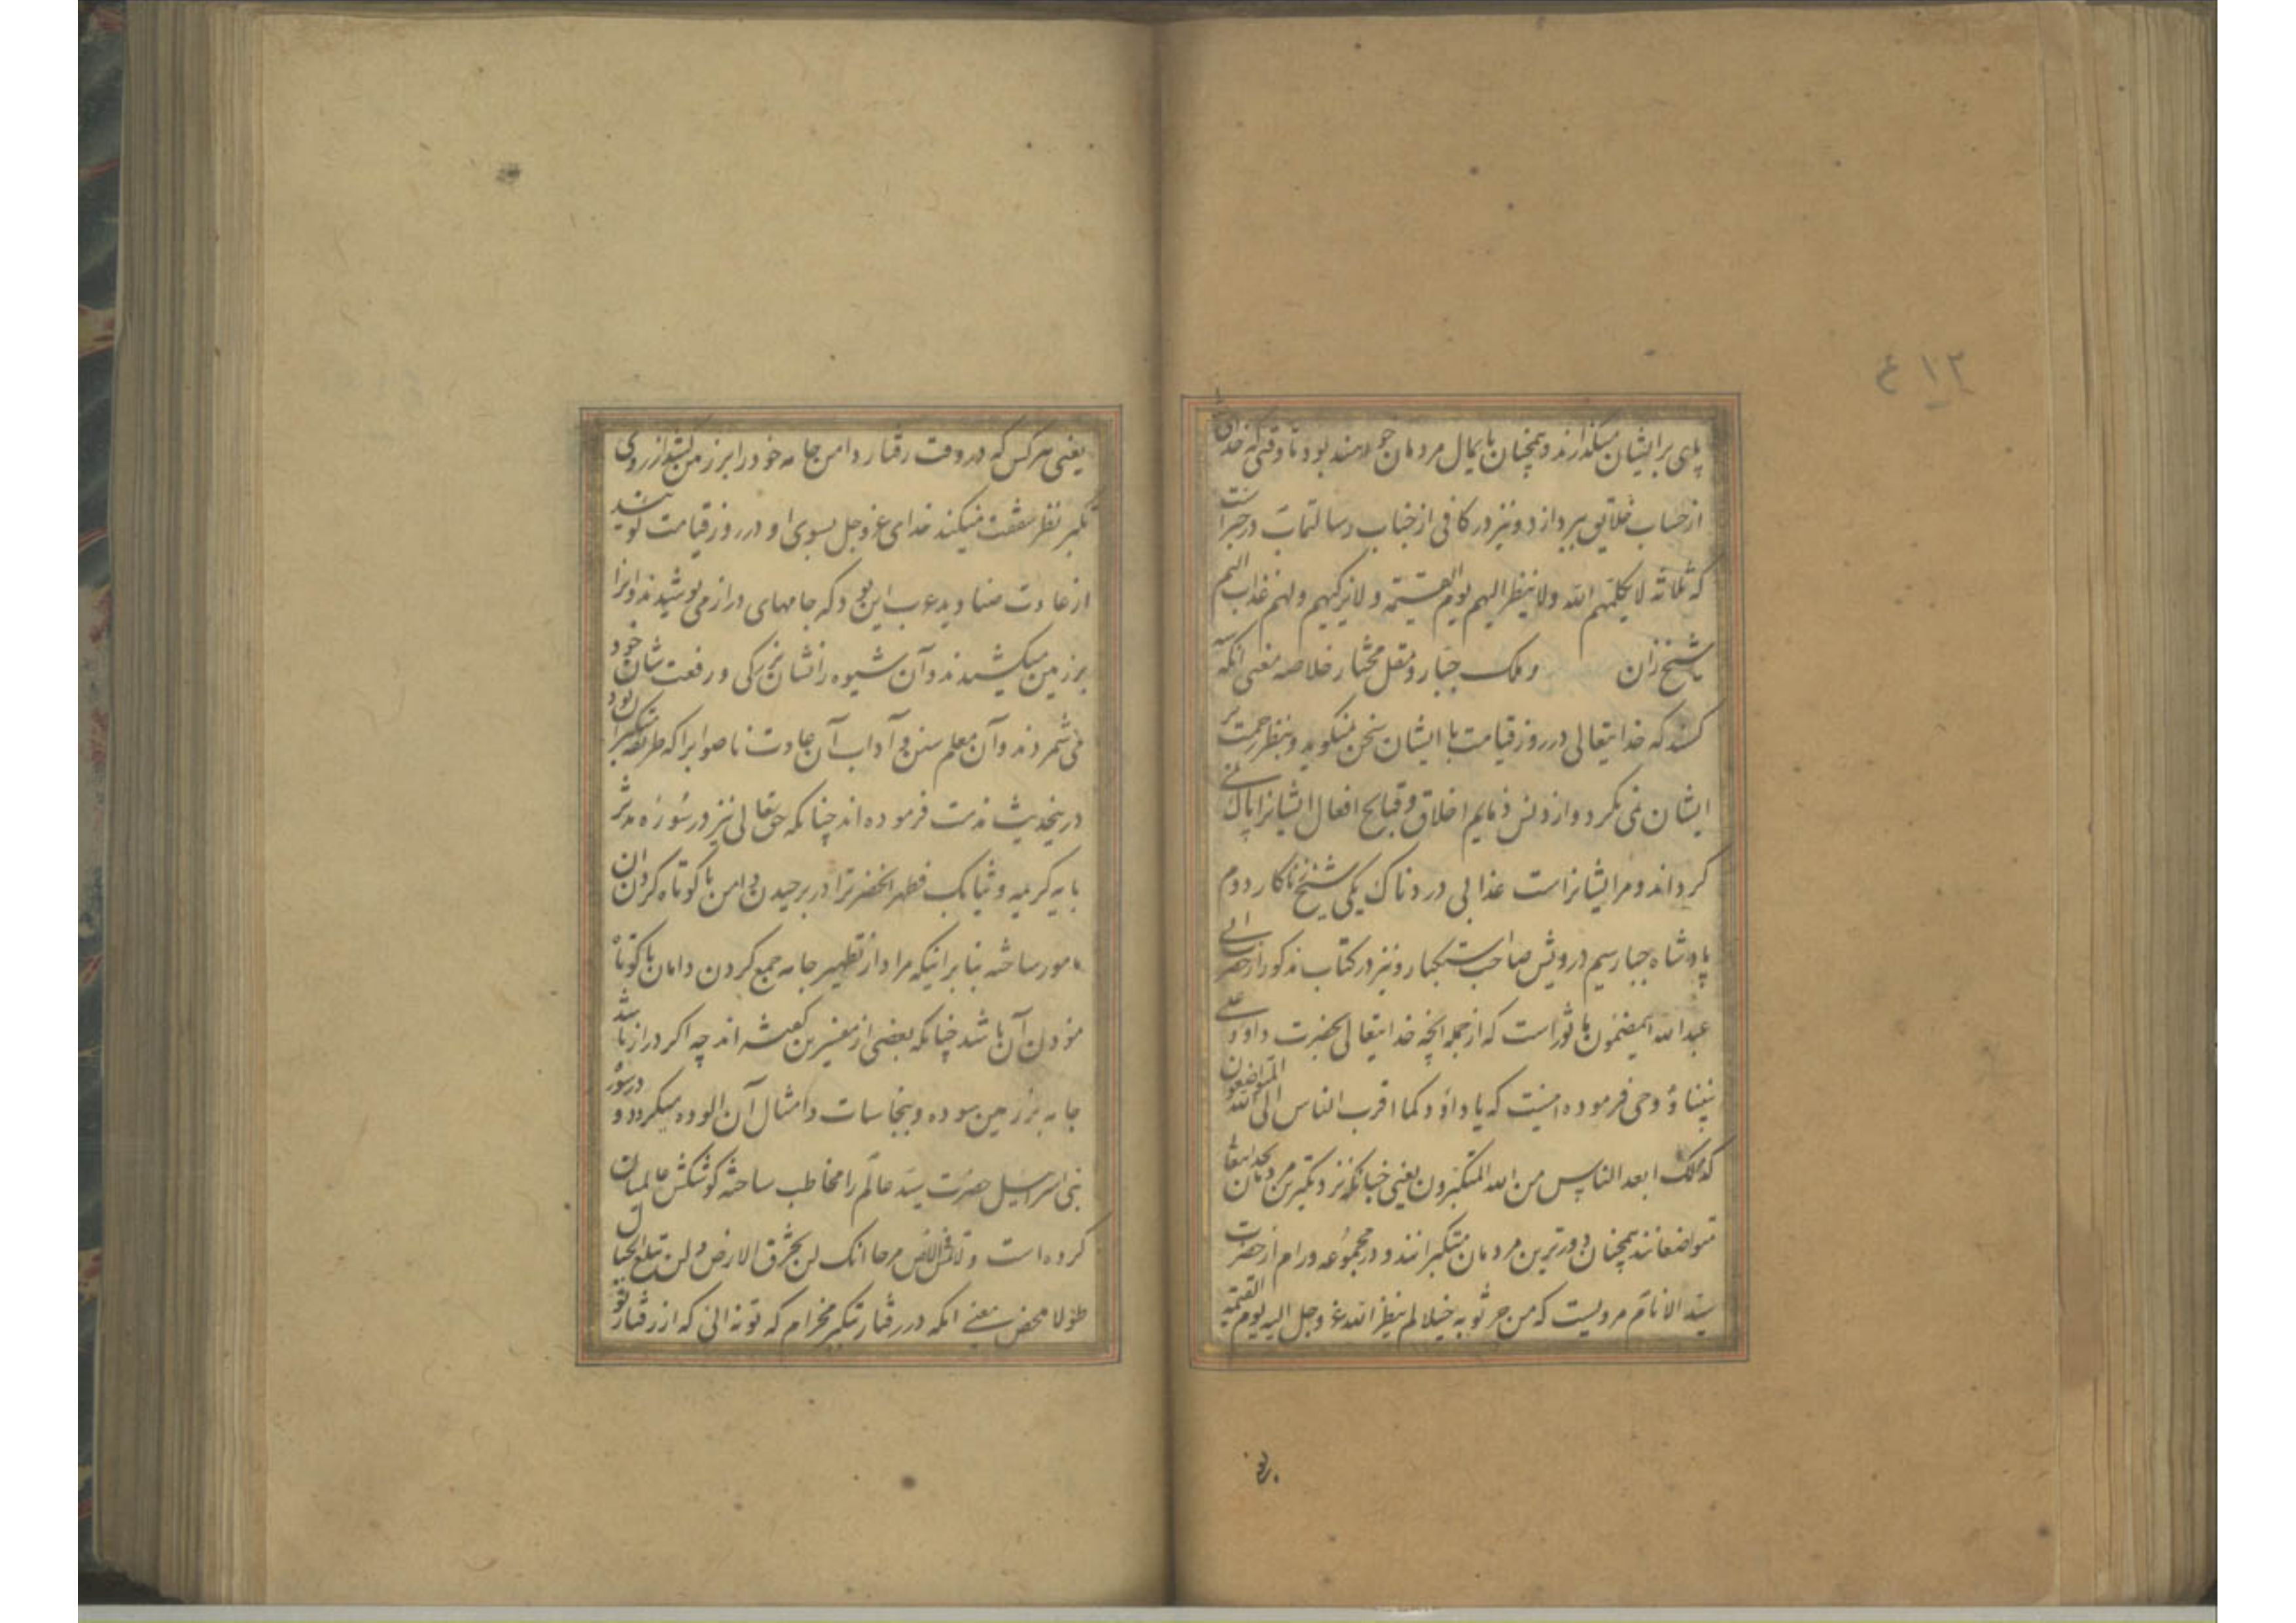 پای بر ایشان میگذارند و همچنان پایمال مردمان خواهند بود تا وقتی که خدای
از حساب خلایق بپردازد و نیز در کافی از جناب رسالتماب در خبر است
که ثلاثة لا یکلمهم الله ولا ینظر الیهم یوم القیمة ولا یزکیهم ولهم عذاب الیم
شیخ زان وملک جبار و مقل مختار خلاصه معنی انکه سه
کسند که خدایتعالی در روز قیامت با ایشان سخن نمیکوید و بنظر رحمت بر
ایشان نمی نکرد و از ذمایم اخلاق و قبایح افعال ایشانرا پاک نمی
کرداند و مر ایشانراست عذابی دردناک یکی شیخ زناکار دوم
پادشاه جبار سیم درویش صاحب استکبار و نیز در کتاب مذکور از حضرت ابی
عبدالله اینمضمون ماثور است که از جمله انچه خدایتعالی بحضرت داود علی
نبینا و وحی فرموده اینست که یا داود کما اقرب الناس الی الله المتواضعون
کذلک ابعد الناس من الله المتکبرون یعنی چنانکه نزدیکترین مردمان بخدایتعا
متواضعانند همچنان دورترین مردمان متکبرانند و در مجموعه ورام از حضرت
سید الانام مرویست که من جر ثوبه خیلا لم ینظر الله عز وجل الیه یوم القیمة
یعنی هر کس که در وقت رفتار دامن جامه خود را بر زمین کشد از روی
تکبر نظر شفقت نمیکند خدای عز وجل بسوی او در روز قیامت کویند
از عادت صنادید عرب این بود که جامهای دراز می پوشیدند و انرا
بر زمین میکشیدند و آن شیوه را نشان بزرکی و رفعت شان خود
می شمردند و آن معلم سنن و آداب آن عادت ناصوابرا که طریقه متکبران بود
در ینحدیث مذمت فرموده اند چنانکه حق تعالی نیز در سوره مدثر
بایه کریمه و ثیابک فطهر انحضرترا در برچیدن دامن یا کوتاه کردن ان
مامور ساخته بنا بر اینکه مراد از تطهیر جامه جمع کردن دامان یا کوتاه
نمودن آن باشد چنانکه بعضی از مفسرین کفته اند چه اکر دراز باشد
جامه بر زمین سوده و بنجاسات و امثال آن الوده میکردد و در سوره
بنی اسرائیل حضرت سید عالم را مخاطب ساخته کوشکش عالمیان
کرده است و لا تمش فی الارض مرحا انک لن تخرق الارض و لن تبلغ الجبال
طولا محض معنی انکه در رفتار تکبر مخرام که تو نه انی که از رفتار تو